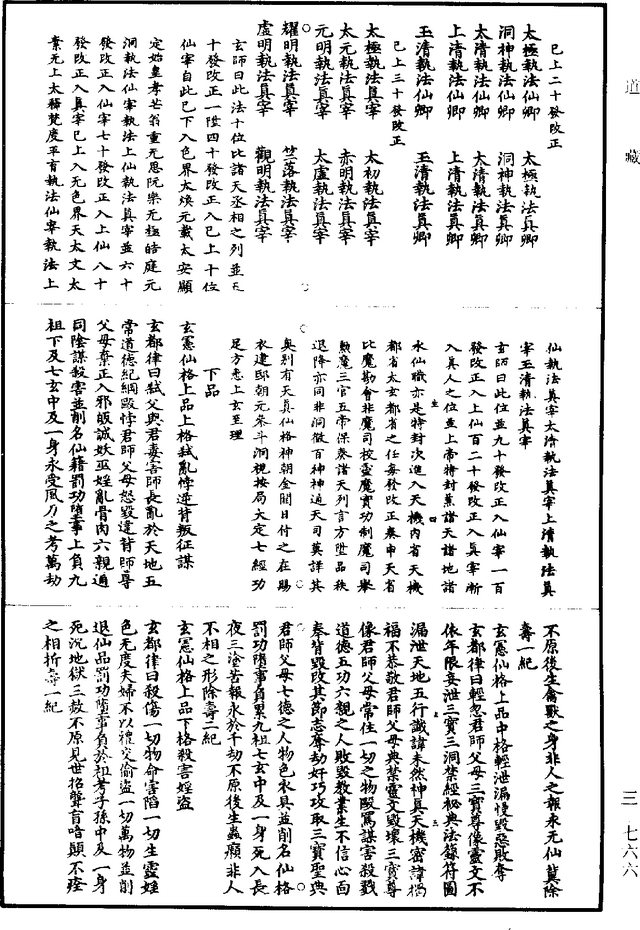 道藏
已上二十發改正
太極執法仙卿　太極執法真卿
洞神執法仙卿　洞神執法真卿
太清執法仙卿　太清執法真卿
上清執法仙卿　上清執法真卿
玉清執法仙卿　玉清執法真卿
已上三十發改正
太極執法真宰　太初執法真宰
太元執法真宰　赤明執法真宰
元明執法真宰　太虛執法真宰
耀明執法真宰　竺落執法真宰
虛明執法真宰　觀明執法真宰
玄師曰此法十位比諸天丞相之列並五
十發改正一陞四十發改正入已上十位
仙宰自此已下入色界太煥元載太安顯
定始皇孝芒翁重无思阮樂元極皓庭元
洞執法仙宰執法上仙執法真宰並六十
發改正入仙宰七十發改正入上仙八十
發改正入真宰已上入无色界天太文太
素无上太釋梵度平育執法仙宰執法上
仙執法真宰太清執法真宰上清執法真
宰玉清執法真宰
玄師曰此位並九十發改正入仙宰一百
發改正入上仙百二十發改正入真宰漸
入真人之位並上帝特封蕉諸天諸地諸
水仙職亦是特封次進入天機內省天機
都省太玄都省之任每發改正奏申天省
比魔勘會非魔司校靈魔實功制魔司舉
勲魔三官五帝保奏諸天列言方陞品秩
退降亦同非洞微百神神通天司莫詳其
奧別有天真仙格神朝金闕日付之在賜
衣建邸朝元參斗洞視按局大定七經功
足方悉上玄至理
下品
玄憲仙格上品上格弑亂悖逆背叛征謀
玄都律曰弑父與君毒害師長亂於天地五
常道德紀綱毆悖君師父母怒毀違背師尊
父母棄正入邪皈誠妖巫婬亂骨肉六親通
同陰謀殺害並削名仙籍罰功墮事上負九
祖下及七玄中及一身永受風刀之考萬劫
不原後生禽獸之身非人之報永无仙冀除
壽一紀
玄憲仙格上品中格輕泄漏慢毀惡敗奪
玄都律曰輕忽君師父母三寶尊像靈文不
依年限妄泄三寶三洞禁經秘典法籙符圖
漏泄天地五行讖諱未然神真天機密諱禍
福不恭敬君師父母典禁靈文毀壞三寶尊
像君師父母常住一切之物毆罵謀害殺戮
道德五功六親之人敗毀教業生不信心面
奉背毀改其節志奪劫奸巧攻取三寶聖典
君師父母七德之人物色衣具並削名仙格
罰功墮事負累九祖七玄中及一身死入長
夜三塗苦報永於千劫不原後生蟲癩非人
不相之形除壽二紀
玄憲仙格上品下格殺害婬盜
玄都律曰殺傷一切物命害陷一切生靈婬
色无度夫婦不以禮交偷盜一切萬物並削
退仙品罰功墮事負於祖考子孫中及一身
死沉地獄三劫不原見世招聾盲喑顛不痊
之相折壽一紀
三一七六六